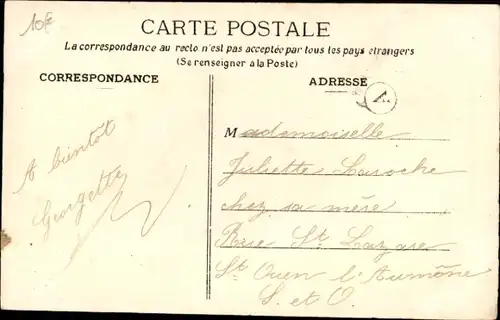 10E
CARTE POSTALE
La correspondance au recto n'est pas acceptée par tous les pays étrangers
(Se renseigner à la Poste)
CORRESPONDANCE
A bientôt
Georgette
ADRESSE
A
Mademoiselle
Juliette Laroche
chez sa mère
Rue St Lazare
St Ouen l'Aumône
S. et O.